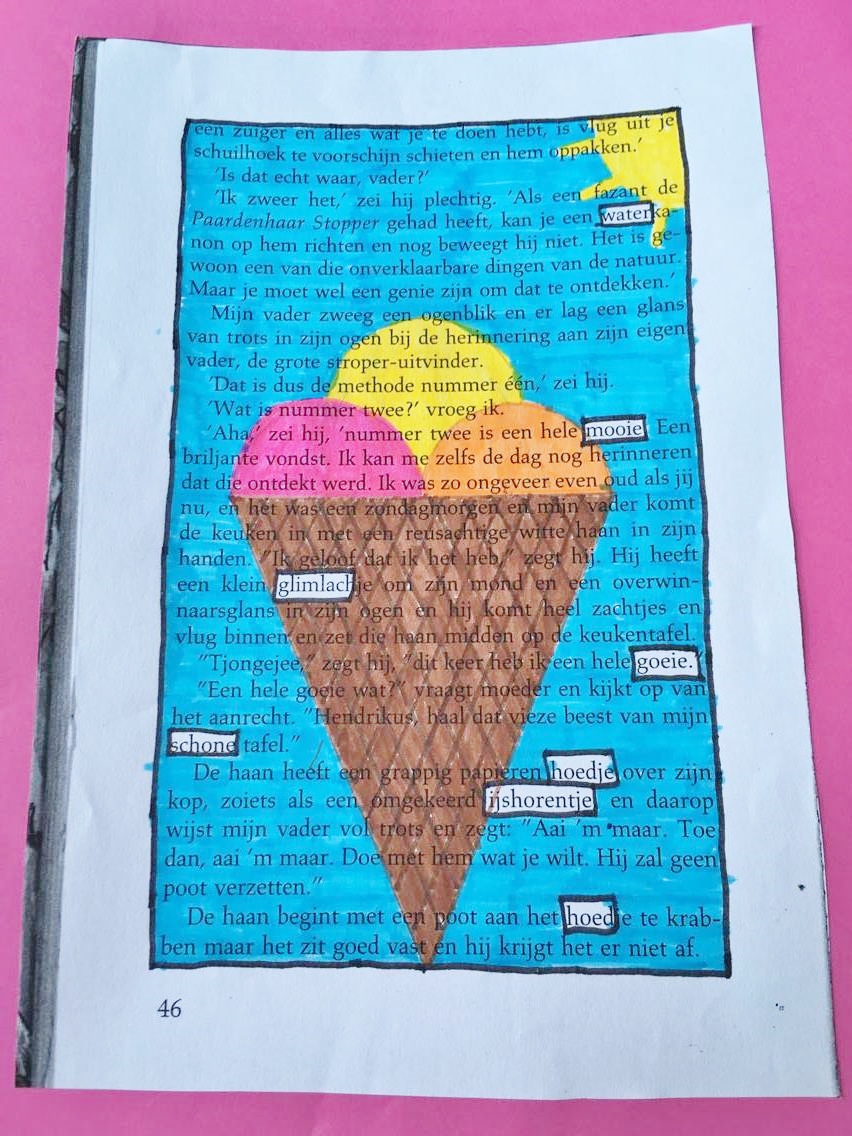 een zuiger en alles wat je te doen hebt, is vlug uit je
schuilhoek te voorschijn schieten en hem oppakken.'
'Is dat echt waar, vader?'
'Ik zweer het,' zei hij plechtig. 'Als een fazant de
Paardenhaar Stopper gehad heeft, kan je een waterka-
non op hem richten en nog beweegt hij niet. Het is ge-
woon een van die onverklaarbare dingen van de natuur.
Maar je moet wel een genie zijn om dat te ontdekken.'
Mijn vader zweeg een ogenblik en er lag een glans
van trots in zijn ogen bij de herinnering aan zijn eigen
vader, de grote stroper-uitvinder.
'Dat is dus de methode nummer één,' zei hij.
'Wat is nummer twee?' vroeg ik.
'Aha,' zei hij, 'nummer twee is een hele mooie. Een
briljante vondst. Ik kan me zelfs de dag nog herinneren
dat die ontdekt werd. Ik was zo ongeveer even oud als jij
nu, en het was een zondagmorgen en mijn vader komt
de keuken in met een reusachtige witte haan in zijn
handen. "Ik geloof dat ik het heb," zegt hij. Hij heeft
een klein glimlachje om zijn mond en een overwin-
naarsglans in zijn ogen en hij komt heel zachtjes en
vlug binnen en zet die haan midden op de keukentafel.
"Tjongejee," zegt hij, "dit keer heb ik een hele goeie."
"Een hele goeie wat?" vraagt moeder en kijkt op van
het aanrecht. "Hendrikus, haal dat vieze beest van mijn
schone tafel."
De haan heeft een grappig papieren hoedje over zijn
kop, zoiets als een omgekeerd ijshorentje, en daarop
wijst mijn vader vol trots en zegt: "Aai 'm maar. Toe
dan, aai 'm maar. Doe met hem wat je wilt. Hij zal geen
poot verzetten."
De haan begint met een poot aan het hoedje te krab-
ben maar het zit goed vast en hij krijgt het er niet af.
46